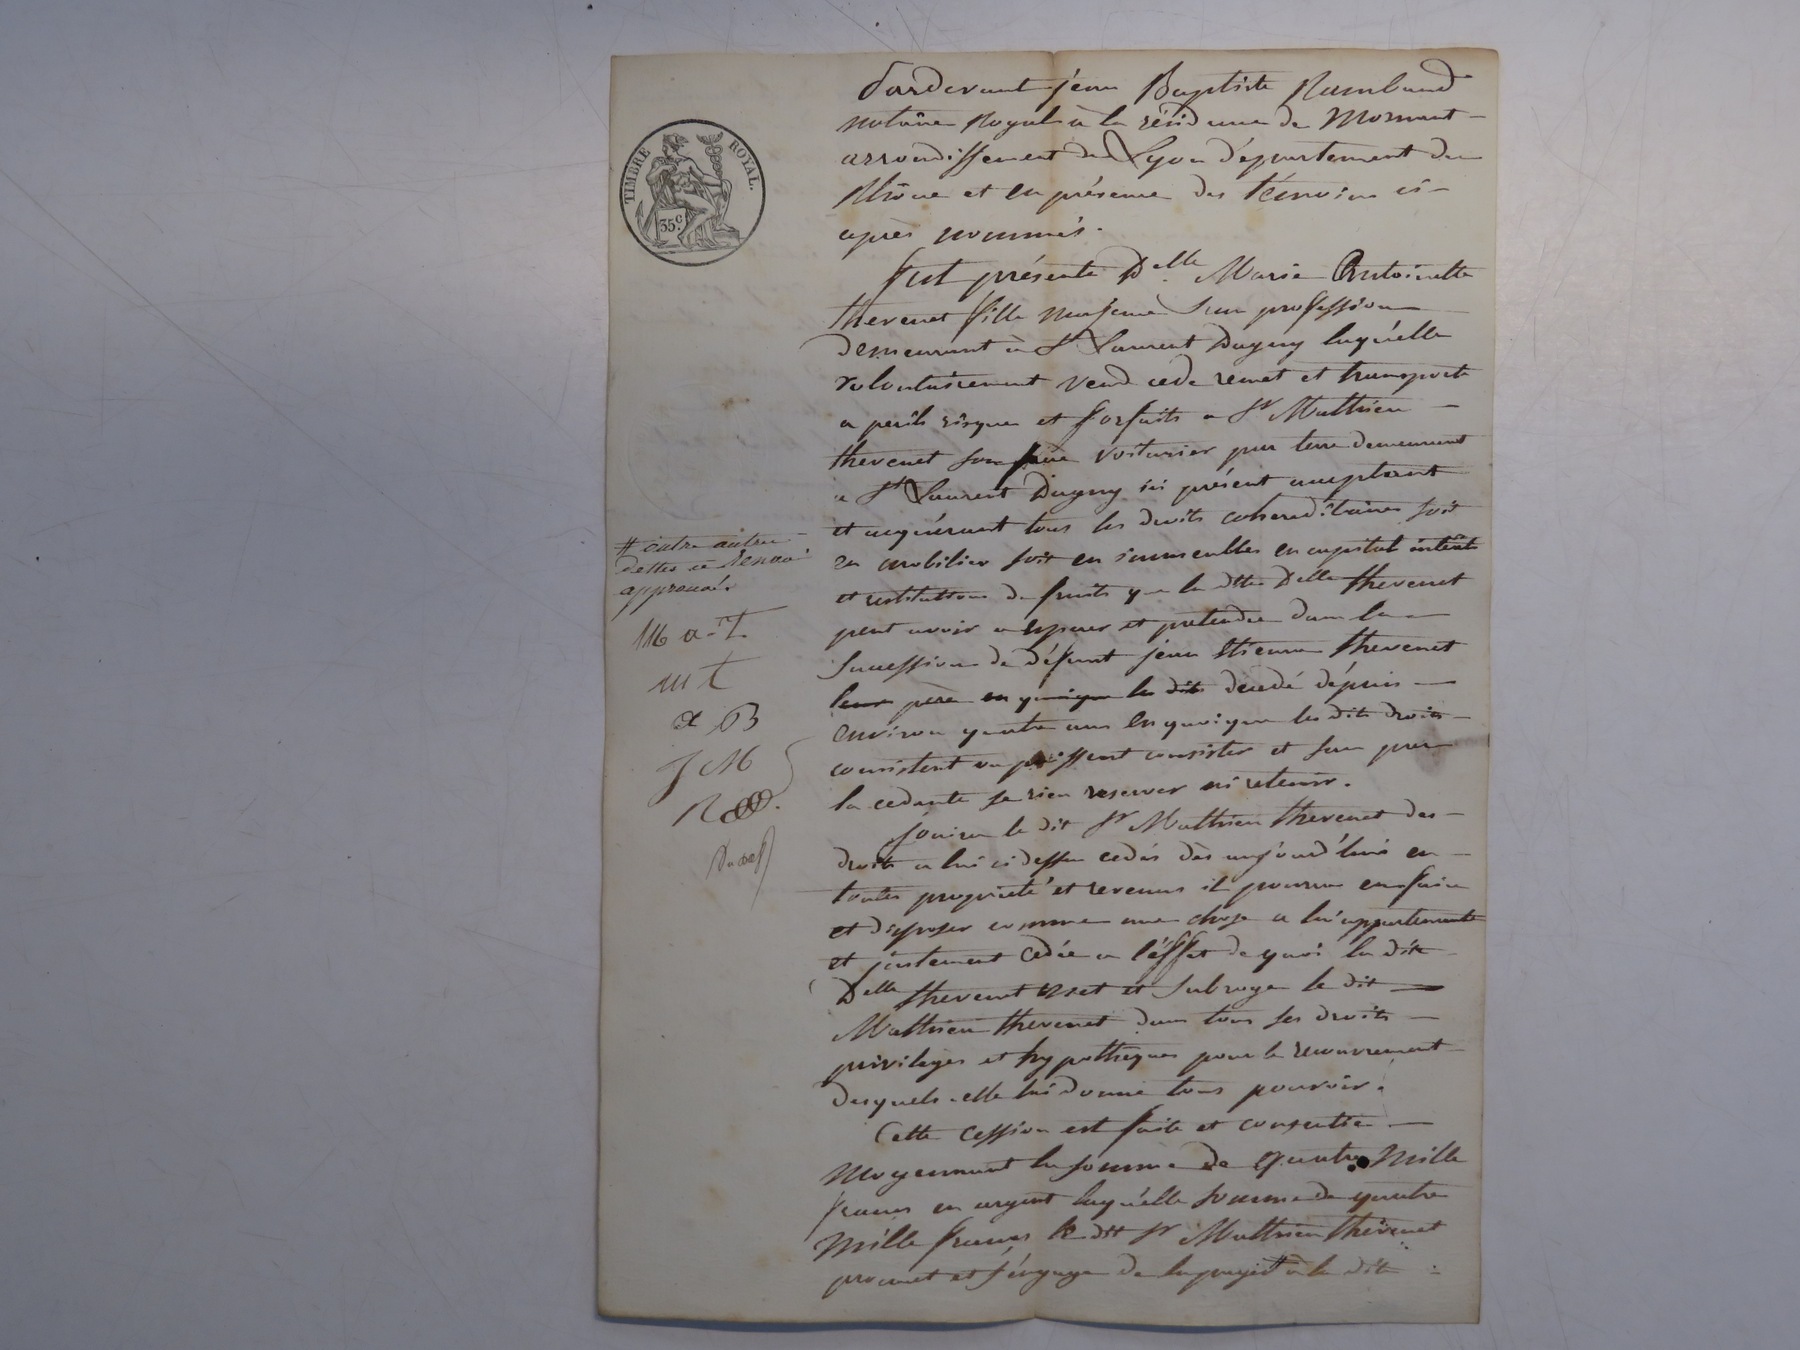 Pardevant jean Baptiste Rambaud
notaire Royal à la résidence de Mornant
arrondissement de Lyon département du
Rhône et en présence des témoins ci-
après nommés.
TIMBRE ROYAL.
35 c.
fut présente Delle. Marie Antoinette
thevenet fille majeure sans profession
demeurant à St Laurent Dagny laquelle
volontairement vend cede remet et transporte
a perils risques et forfaits a Sr Matthieu
thevenet son frère voiturier par terre demeurant
a St Laurent Dagny ici présent acceptant
et acquérant tous les droits coheréditaires soit
en mobilier soit en immeubles en capital intérêts
et restitution de fruits que la dite Delle thevenet
peut avoir a esperer et pretendre dans la
succession de défunt jean Etienne thevenet
leur père en quoique les dits décédé dépuis
environ quatre ans en quoique les dits droits
consistent ou puissent consister et sans par
la cedante se rien reserver ni retenir.
# outre autres
dettes ce renvoi
approuvé.
M a. T.
m t
a B
J M
R
Jouira le dit Sr Matthieu thevenet des
droits a lui ci dessus cedés dès aujourd'hui en
toutes propriété et revenus il pourra en faire
et disposer comme une chose a lui appartenante
et justement cedée a l'éffet de quoi la dite
Delle thevenet met et subroge le dit
Matthieu thevenet dans tous ses droits
privileges et hypothèques pour le recouvrement
desquels elle lui donne tous pouvoir.
Cette cession est faite et consentie
moyennant la somme de quatre Mille
francs en argent laquelle somme de quatre
Mille francs le dit Sr Matthieu thévenet
promet et s'éngage de la payer à la dite